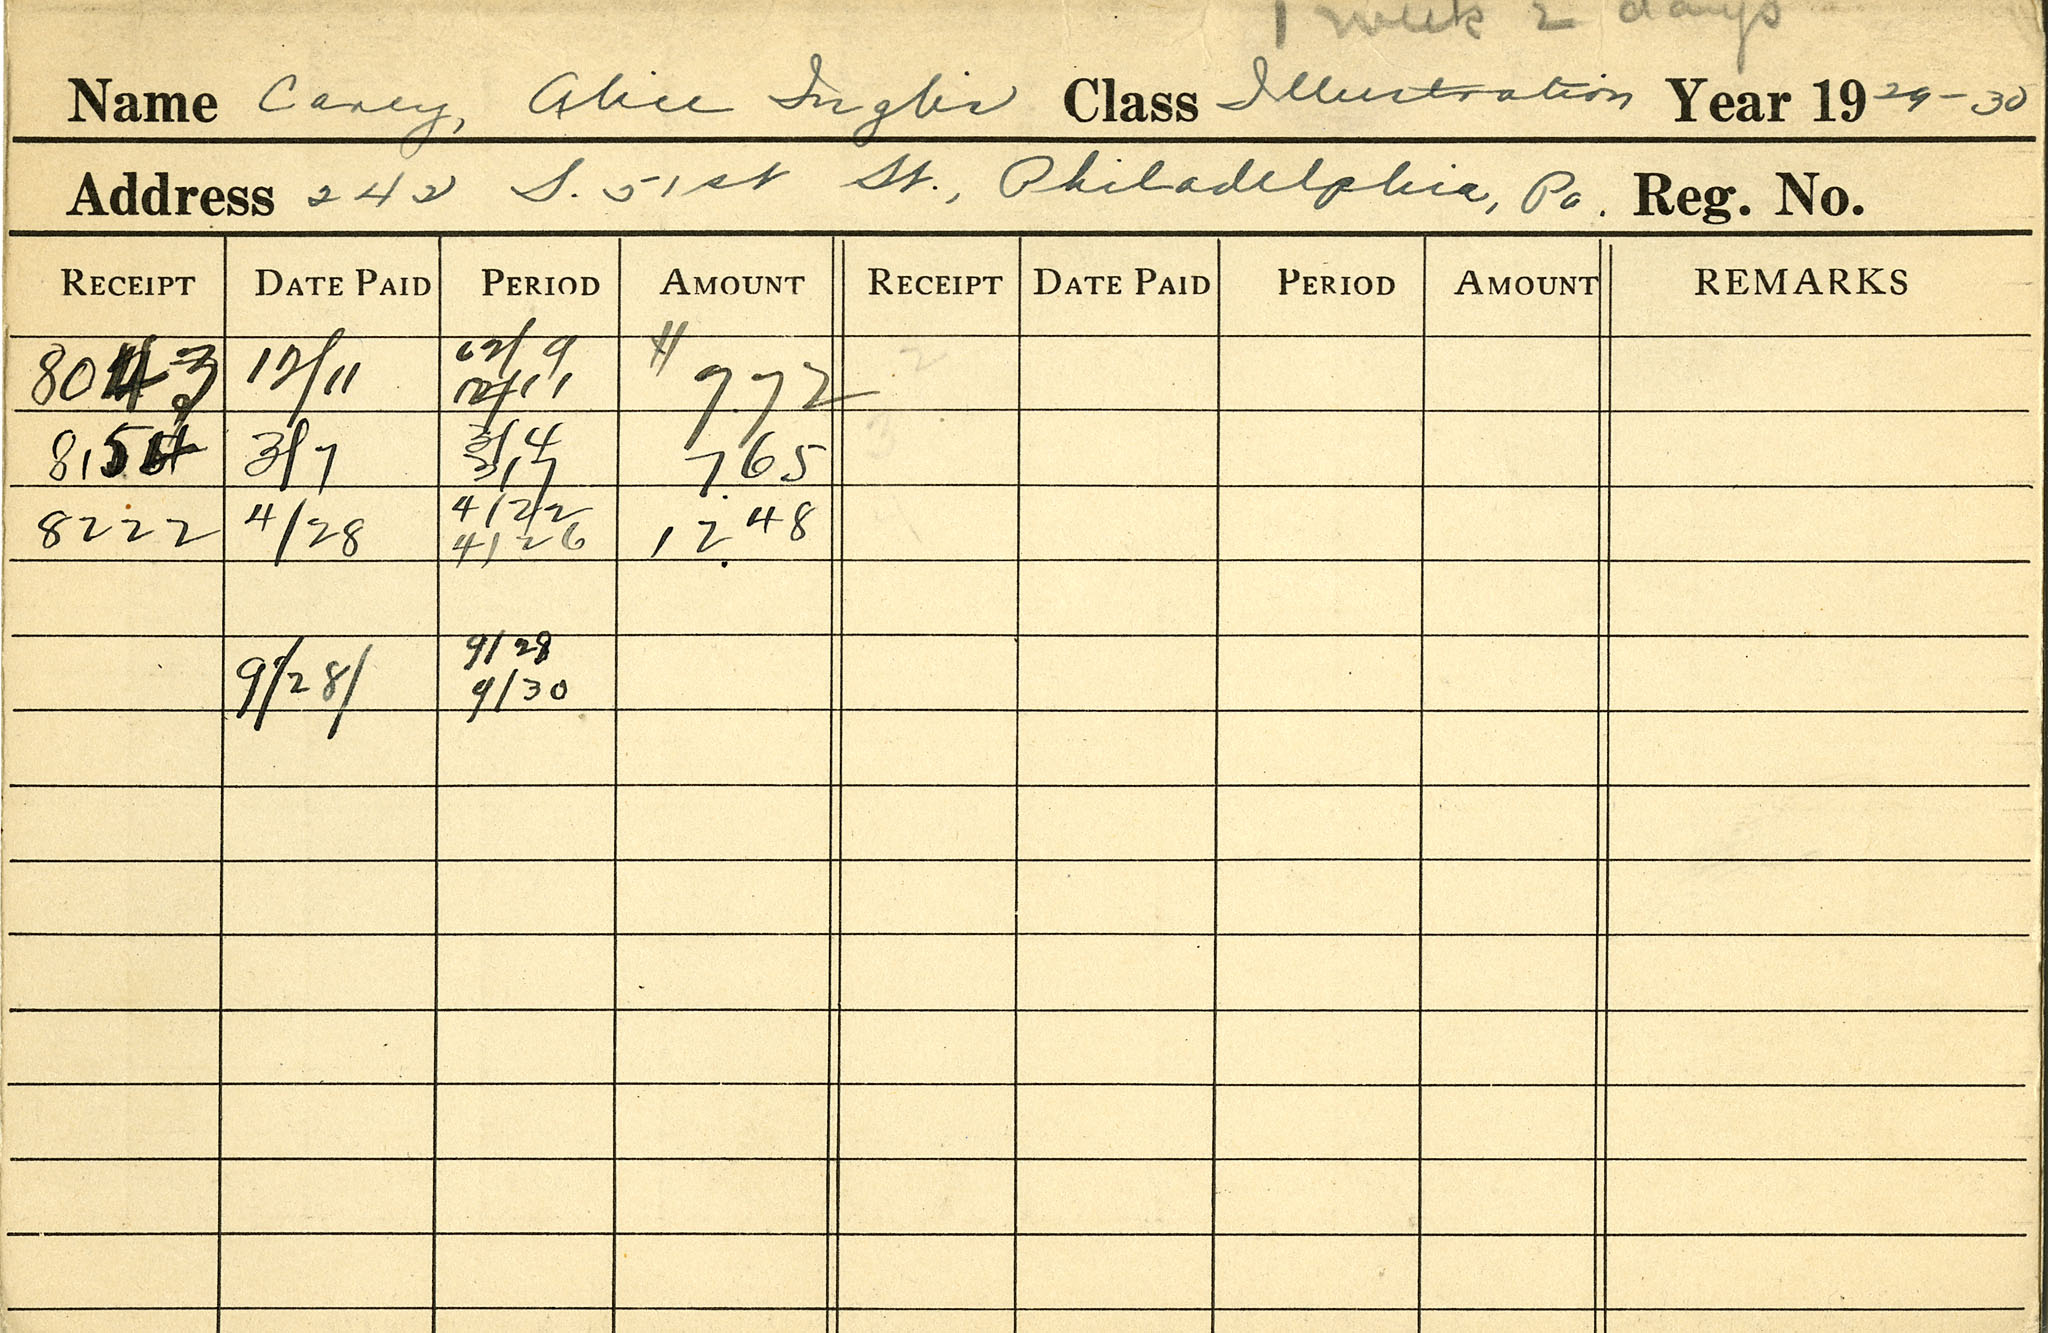 1 week 2 days
Name Carey, Alice Inglis Class Illustration Year 1929-30
Address 242 S. 51st St., Philadelphia, Pa. Reg. No.
RECEIPT DATE PAID PERIOD AMOUNT RECEIPT DATE PAID PERIOD AMOUNT REMARKS
8043 12/11 12/9 12/11 9 72 2
3/7 3/4 3/7 7.65 3
8222 4/28 4/22 4/26 12.48 4
9/28/ 9/28 9/30